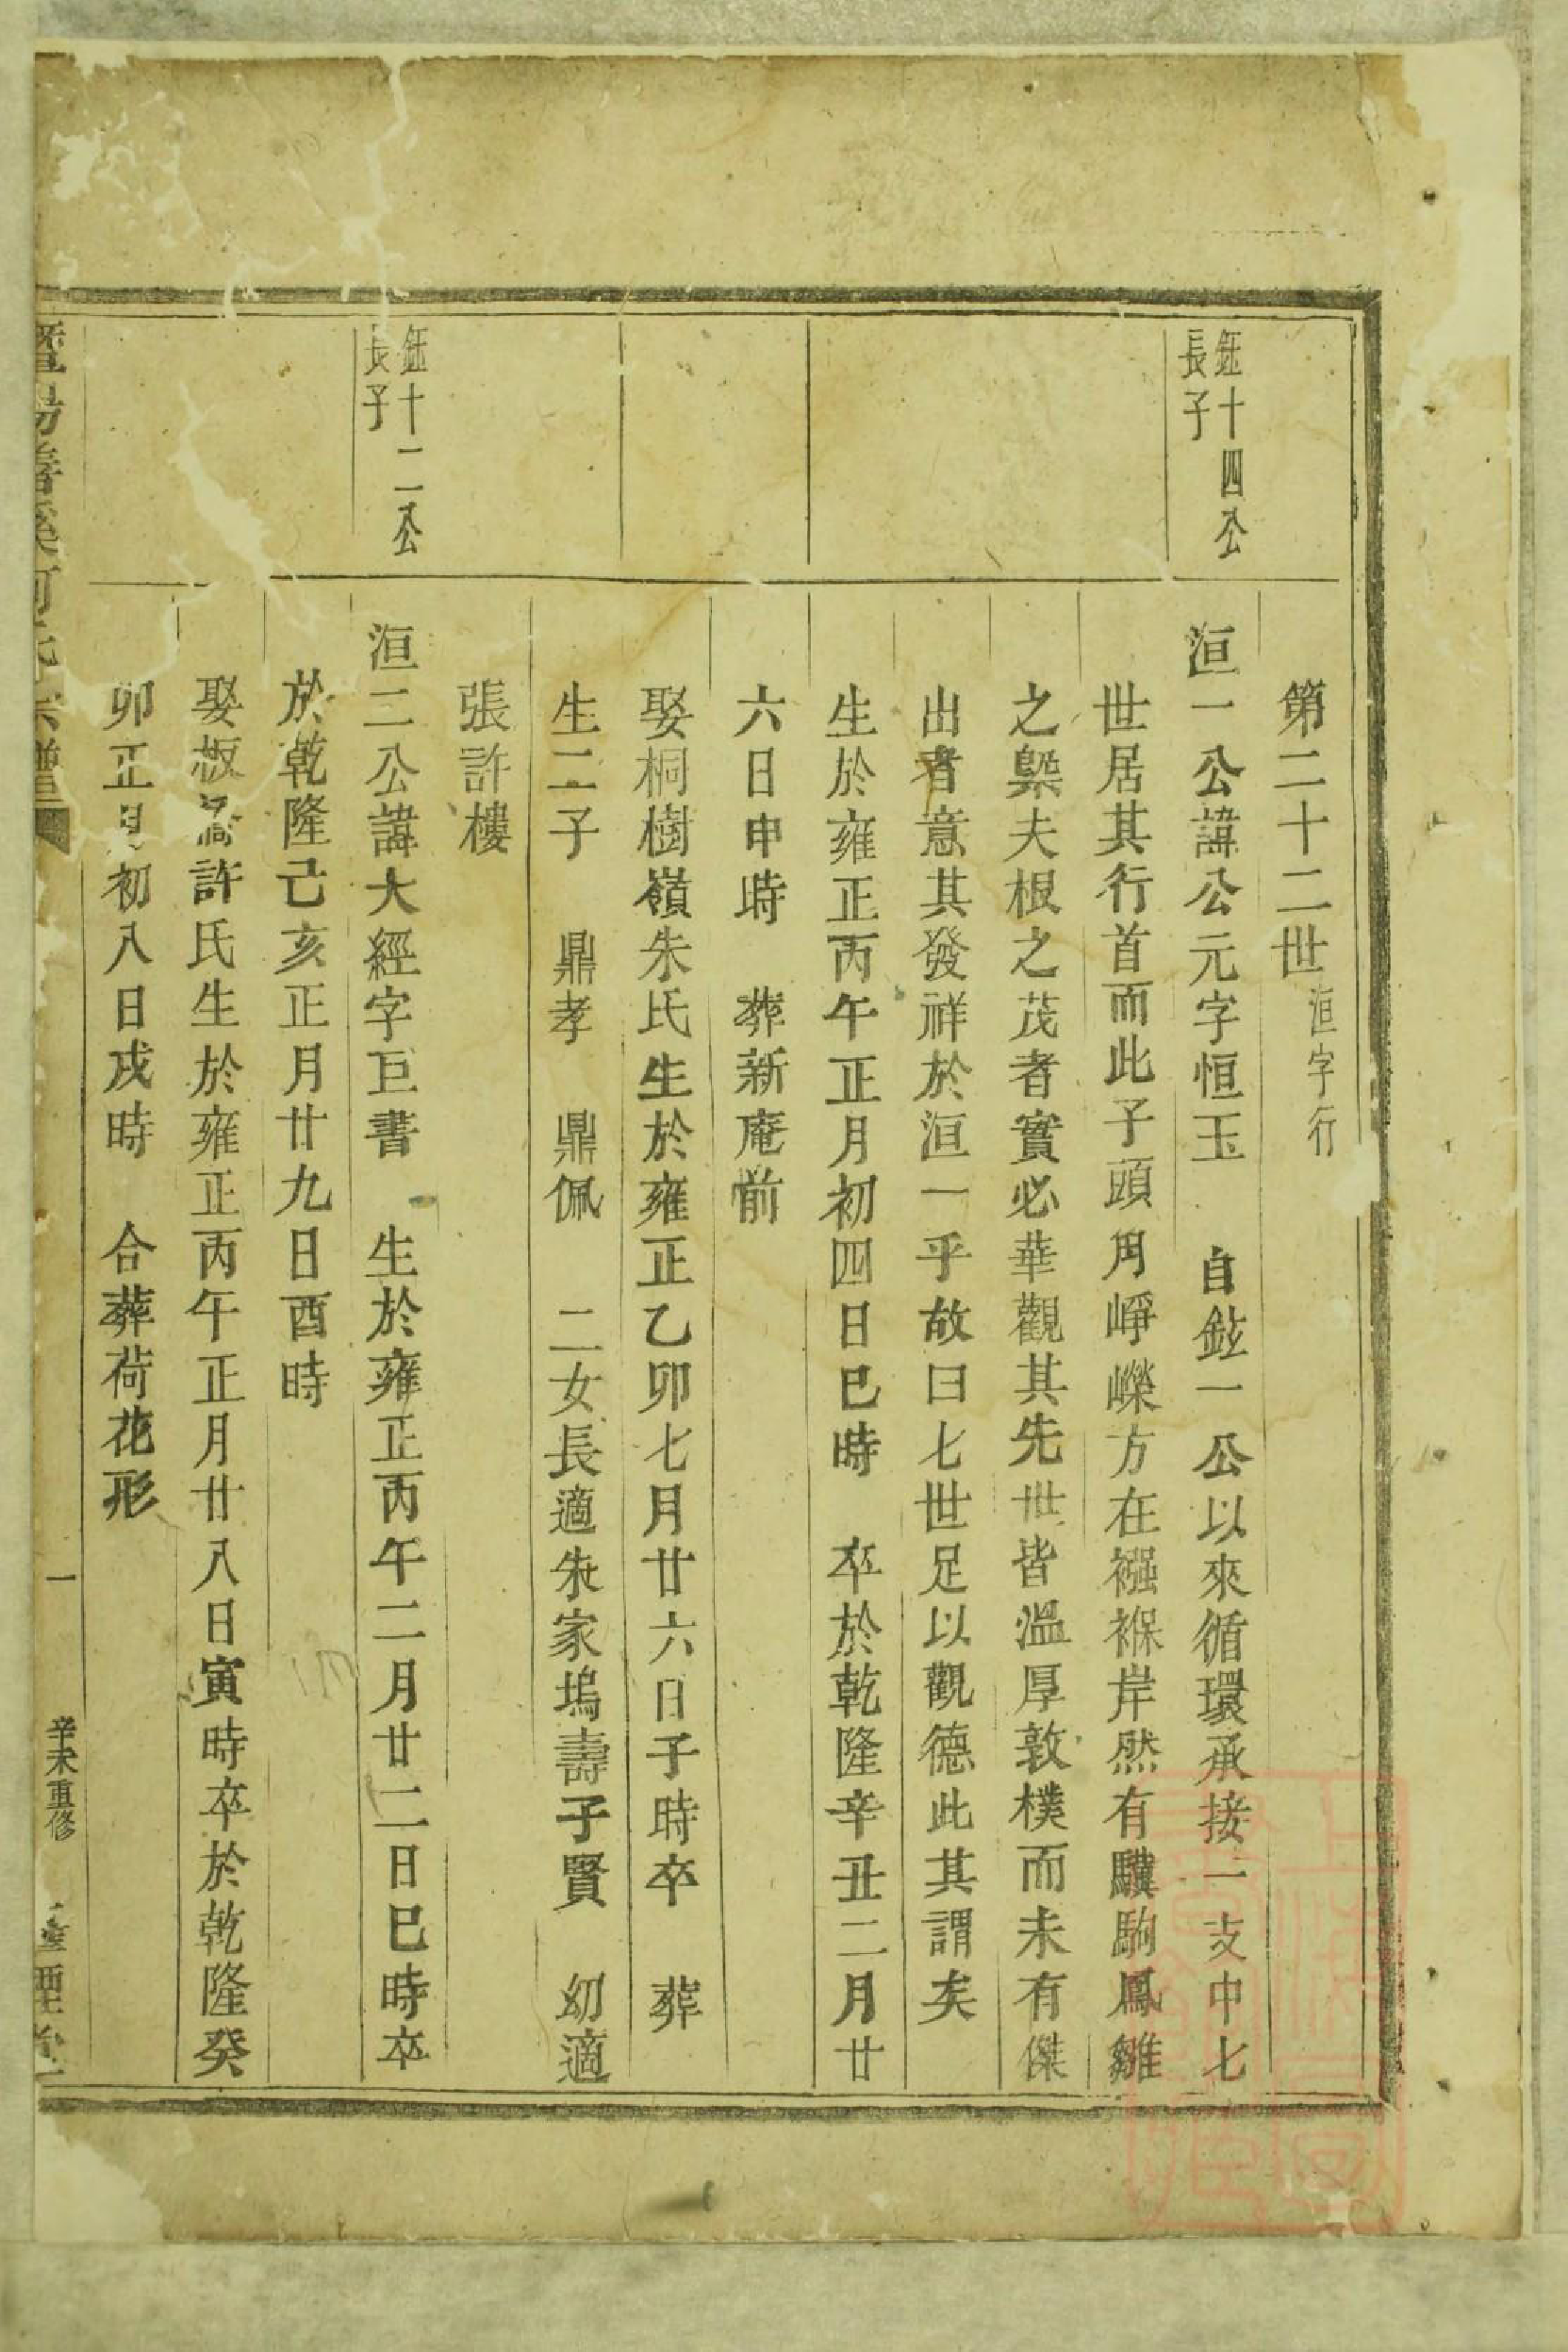 第二十二世洹字行
鈺十四公
長子
洹一公諱公元字恒玉 自鉉一公以來循環承接一支中七
世居其行首而此子頭角崢嶸方在襁褓岸然有驥駒鳳雛
之槩夫根之茂者實必華觀其先世皆溫厚敦樸而未有傑
出者意其發祥於洹一乎故曰七世足以觀德此其謂矣
生於雍正丙午正月初四日巳時 卒於乾隆辛丑二月廿
六日申時 葬新庵前
娶桐樹嶺朱氏生於雍正乙卯七月廿六日子時卒 葬
生二子 鼎孝 鼎佩 二女長適朱家塢壽子賢 幼適
張許樓
鈺十二公
長子
洹二公諱大經字巨書 生於雍正丙午二月廿二日巳時卒
於乾隆己亥正月廿九日酉時
娶板橋許氏生於雍正丙午正月廿八日寅時卒於乾隆癸
卯正月初八日戌時 合葬荷花形
暨陽 溪何氏宗譜 一 辛未重修